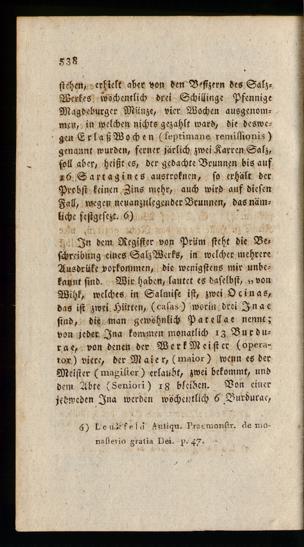 538
stehen, erhielt aber von den Besizern des Salz-
Werkes wöchentlich drei Schillinge Pfennige
Magdeburger Münze, vier Wochen ausgenom-
men, in welchen nichts gezahlt ward, die deswe-
gen ErlaßWochen (septimane remissionis)
genannt wurden, ferner järlich zwei Karren Salz,
soll aber, heißt es, der gedachte Brunnen bis auf
26 Sartagines austroknen, so erhält der
Probst keinen Zins mehr, auch wird auf diesen
Fall, wegen neuanzulegender Brunnen, das näm-
liche festgeseze. 6)
In dem Register von Prüm steht die Be-
schreibung eines SalzWerks, in welcher mehrere
Ausdrüke vorkommen, die wenigstens mir unbe-
kannt sind. Wir haben, lautet es daselbst, „von
Wihk, welches in Salmise ist, zwei Ocinas,
das ist zwei Hütten, (casas) worin drei Inae
sind, die man gewöhnlich Patellae nennt;
von jeder Ina kommen monatlich 13 Burdu-
rae, von denen der WerkMeister (opera-
tor) viere, der Maier, (maior) wenn es der
Meister (magister) erlaubt, zwei bekommt, und
dem Abte (Seniori) 18 bleiben. Von einer
jedweden Ina werden wöchentlich 6 Burdurae,
6) Leukfeld Antiqu. Praemonstr. de mo-
nasterio gratia Dei. p. 47.